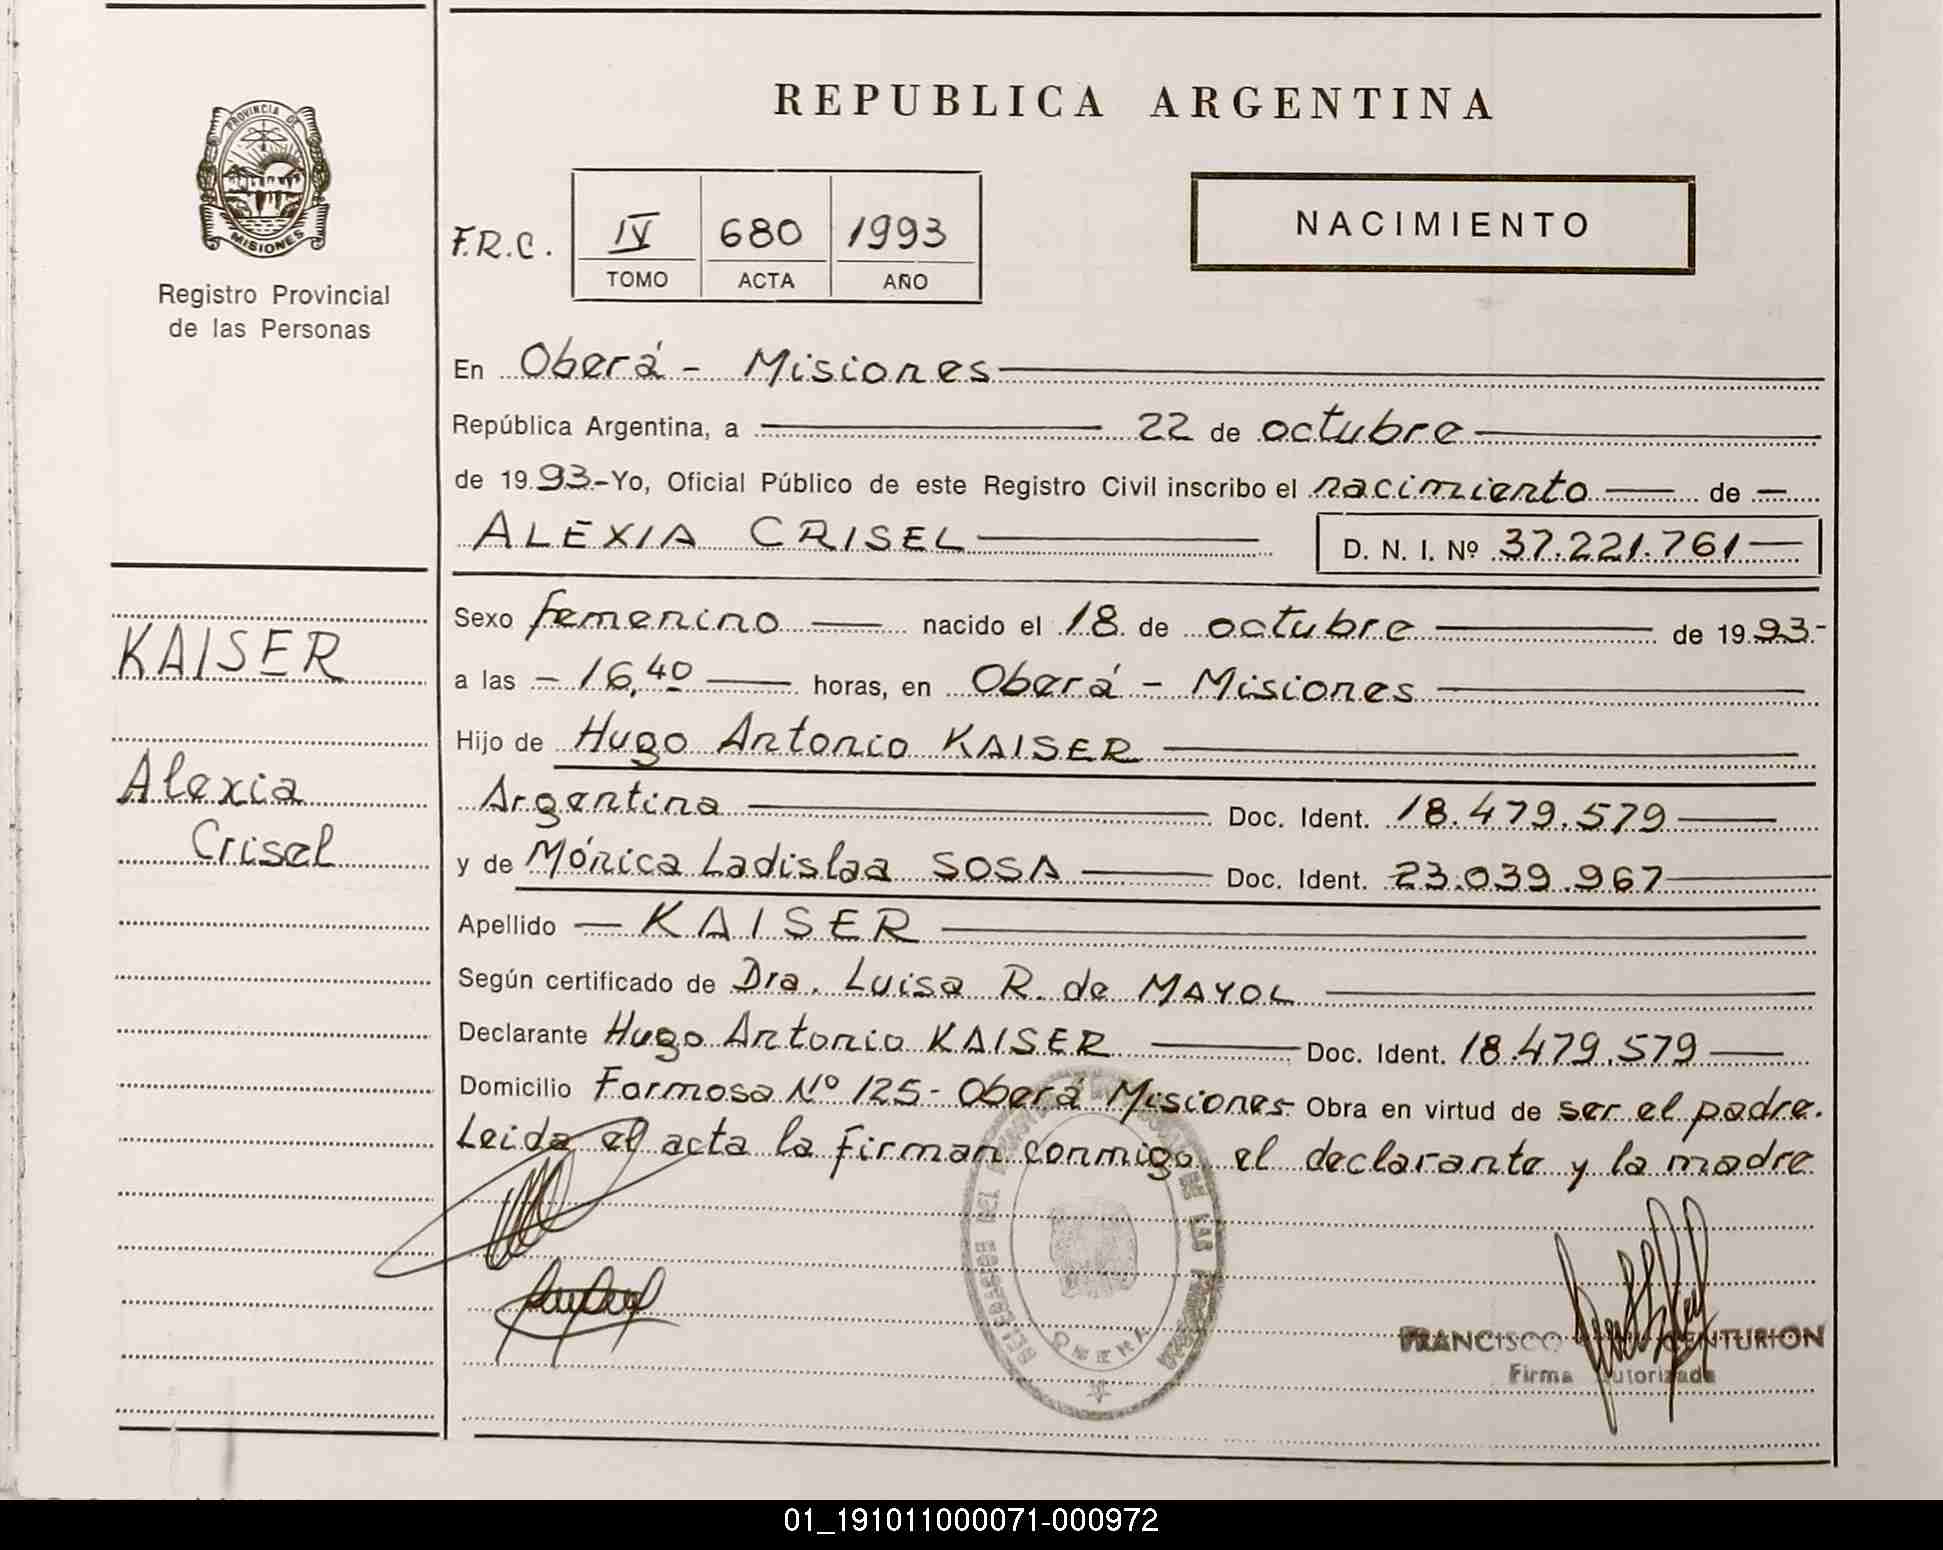 REPUBLICA ARGENTINA
PROVINCIA DE
MISIONES
Registro Provincial
de las Personas
F.R.C. IV 680 1993
TOMO ACTA AÑO
NACIMIENTO
En Oberá - Misiones
República Argentina, a 22 de octubre
de 19 93.- Yo, Oficial Público de este Registro Civil inscribo el nacimiento de
ALEXIA CRISEL D. N. I. Nº 37.221.761
KAISER
Alexia
Crisel
Sexo femenino nacido el 18 de octubre de 19 93.-
a las - 16,40 horas, en Oberá - Misiones
Hijo de Hugo Antonio KAISER
Argentina Doc. Ident. 18.479.579
y de Mónica Ladislaa SOSA Doc. Ident. 23.039.967
Apellido - KAISER
Según certificado de Dra. Luisa R. de MAYOL
Declarante Hugo Antonio KAISER Doc. Ident. 18.479.579
Domicilio Formosa Nº 125 - Oberá Misiones Obra en virtud de ser el padre.
Leida el acta la firman conmigo el declarante y la madre
FRANCISCO CENTURION
Firma Autorizada
01_191011000071-000972